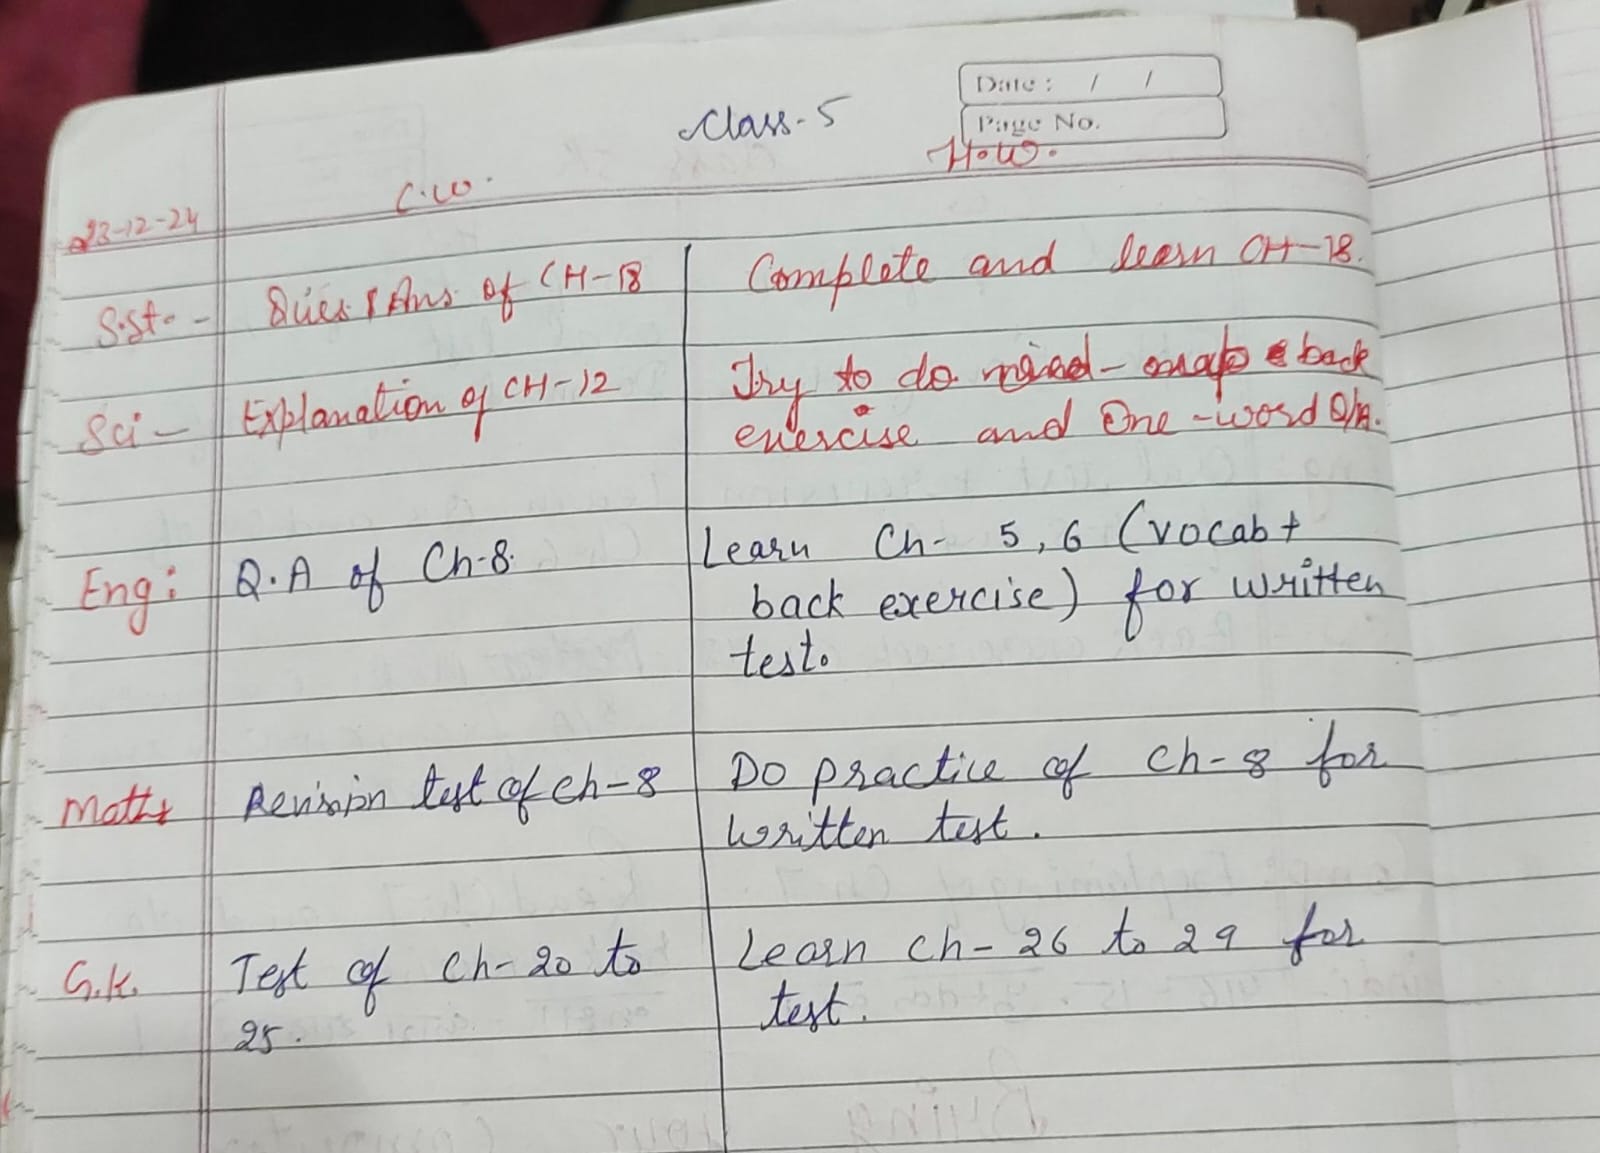 Class-5
Date: / /
Page No.
H.W.
C.W.
23-12-24
S.st. - Ques & Ans of CH-18 Complete and learn CH-18.
Sci - Explanation of CH-12 Try to do mind-map & back
exercise and One-word Q/A.
Eng: Q.A of Ch-8. Learn Ch- 5, 6 (vocab +
back exercise) for written
test.
Maths Revision test of ch-8 Do practice of ch-8 for
written test.
G.K. Test of ch-20 to Learn ch-26 to 29 for
25. test.